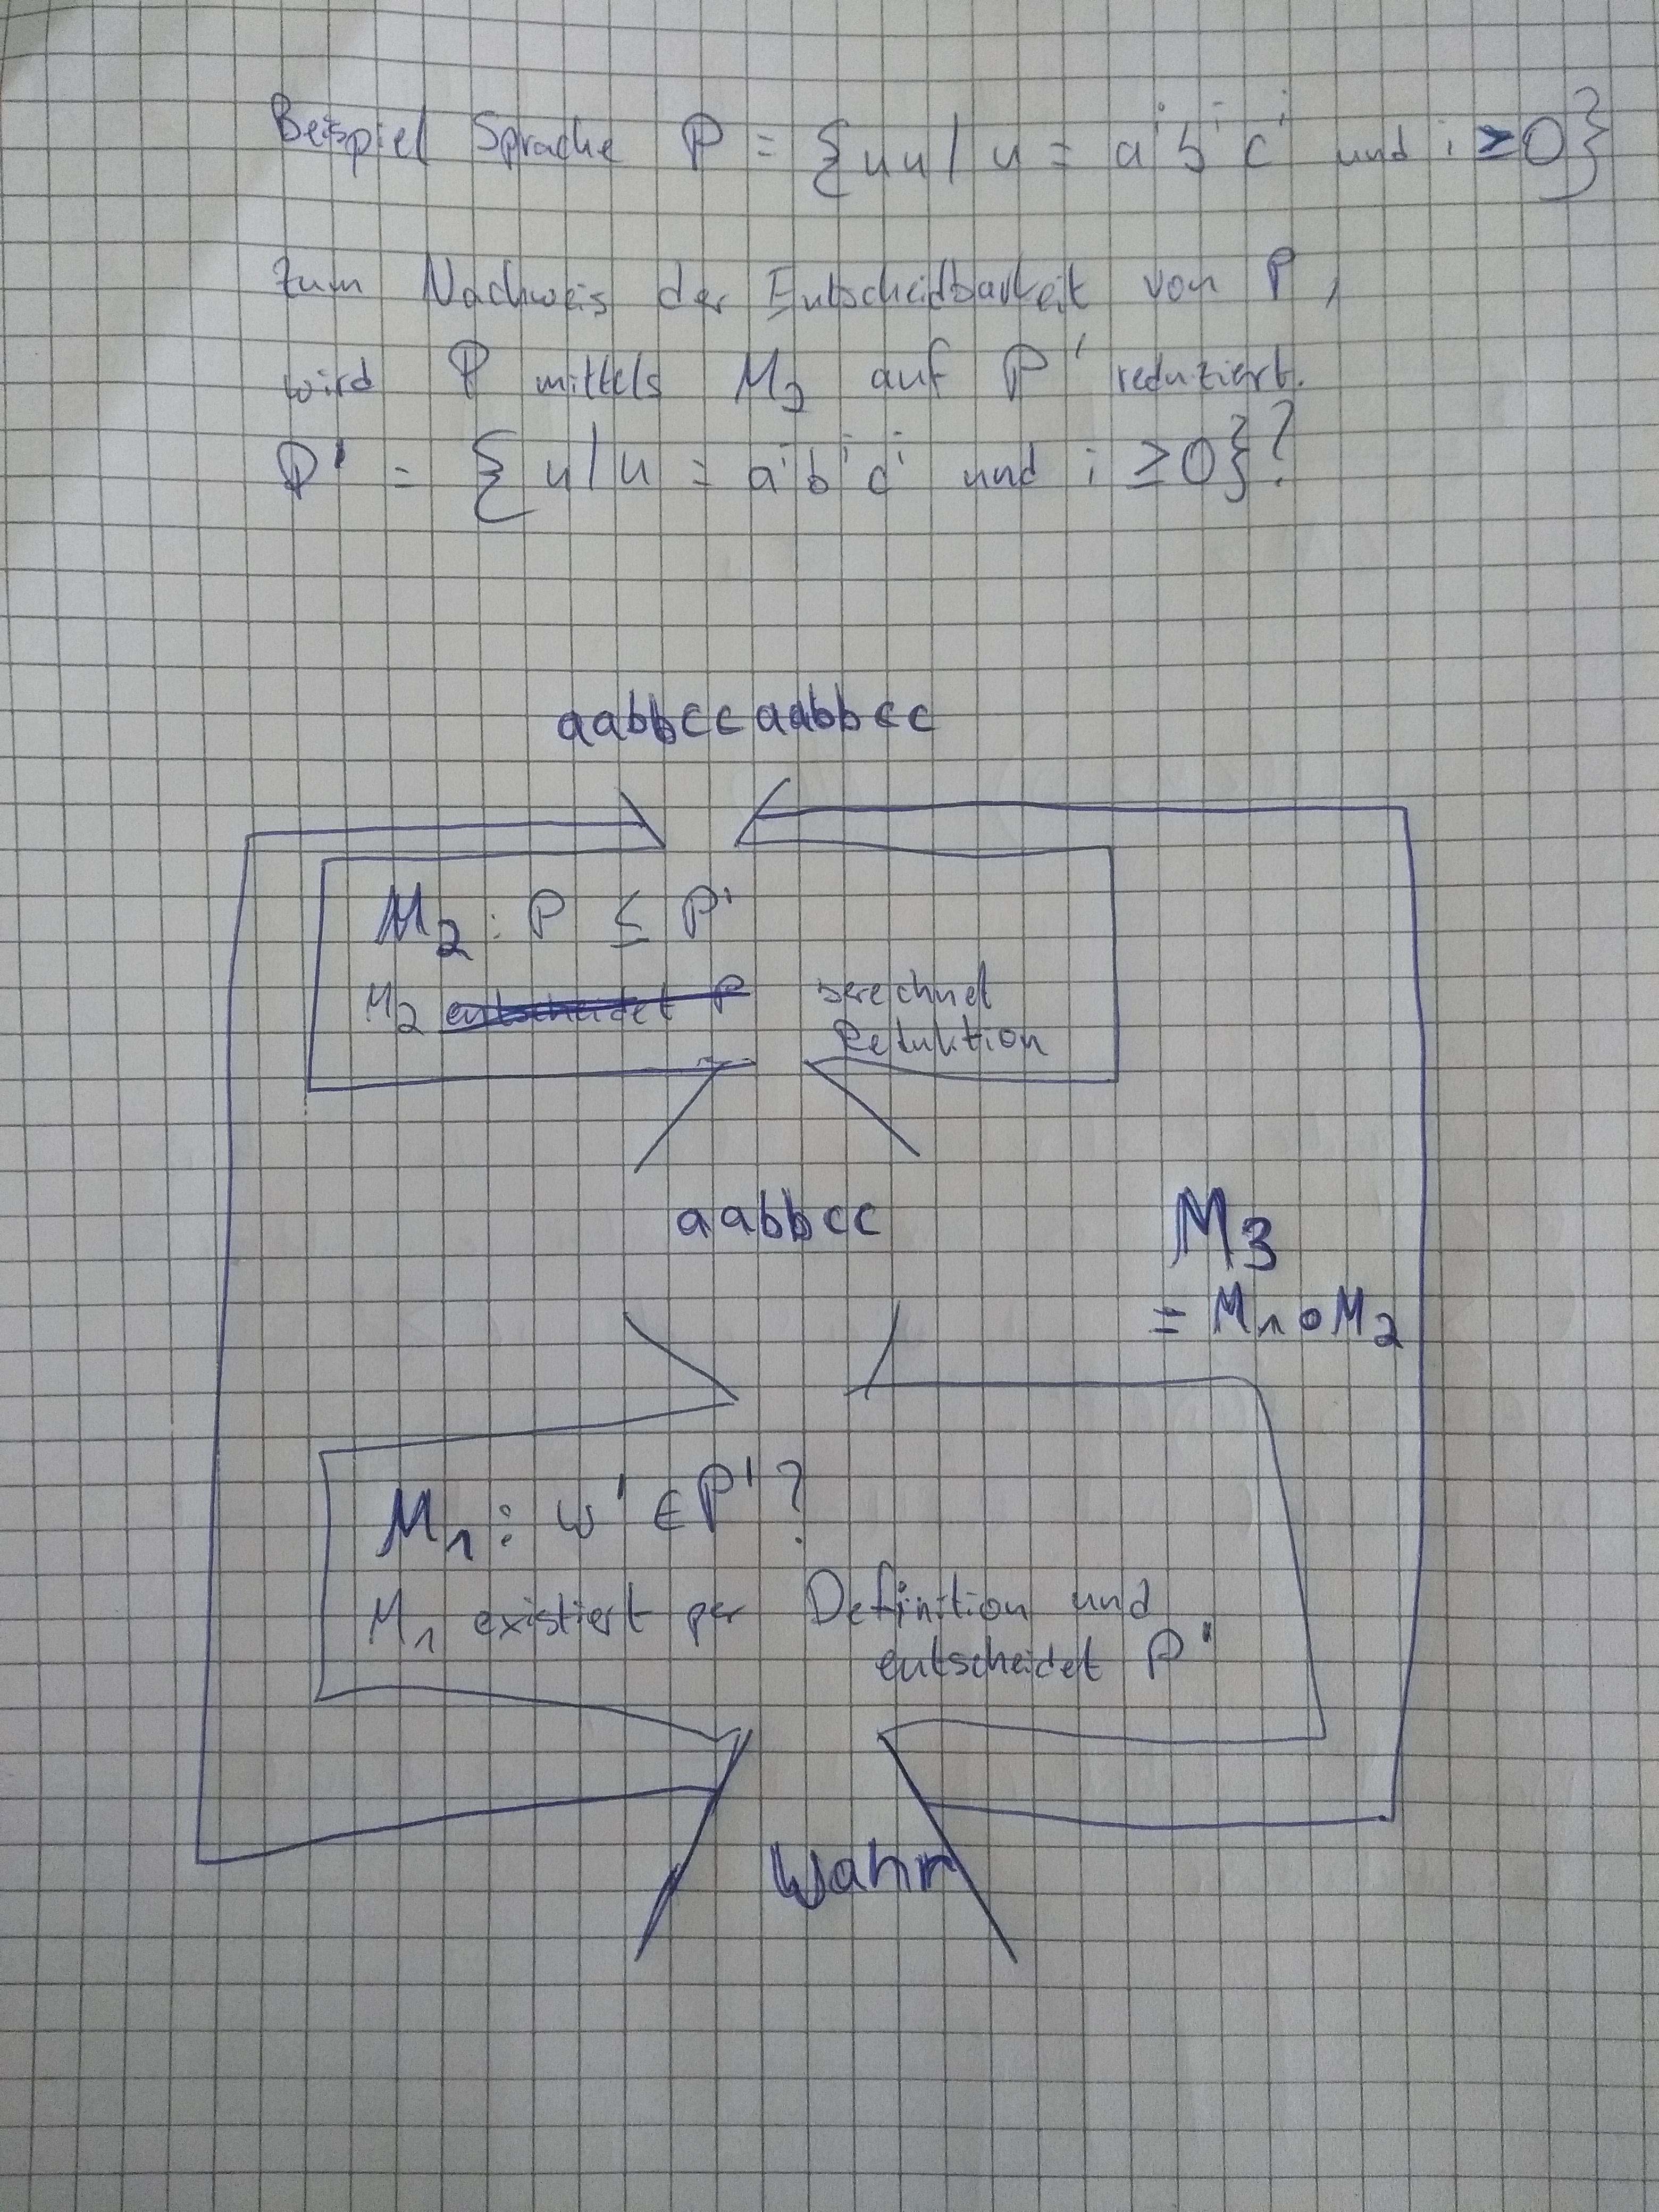 Beispiel Sprache P = {uu | u = aⁱbⁱcⁱ und i ≥ 0}
Zum Nachweis der Entscheidbarkeit von P,
wird P mittels M₃ auf P' reduziert.
P' = {u | u = aⁱbⁱcⁱ und i ≥ 0}?
aabbccaabbcc
M₂: P ≤ P'
M₂ entscheidet P berechnet
Reduktion
aabbcc
M₃
= M₁∘M₂
M₁: w' ∈ P'?
M₁ existiert per Definition und
entscheidet P'
Wahr